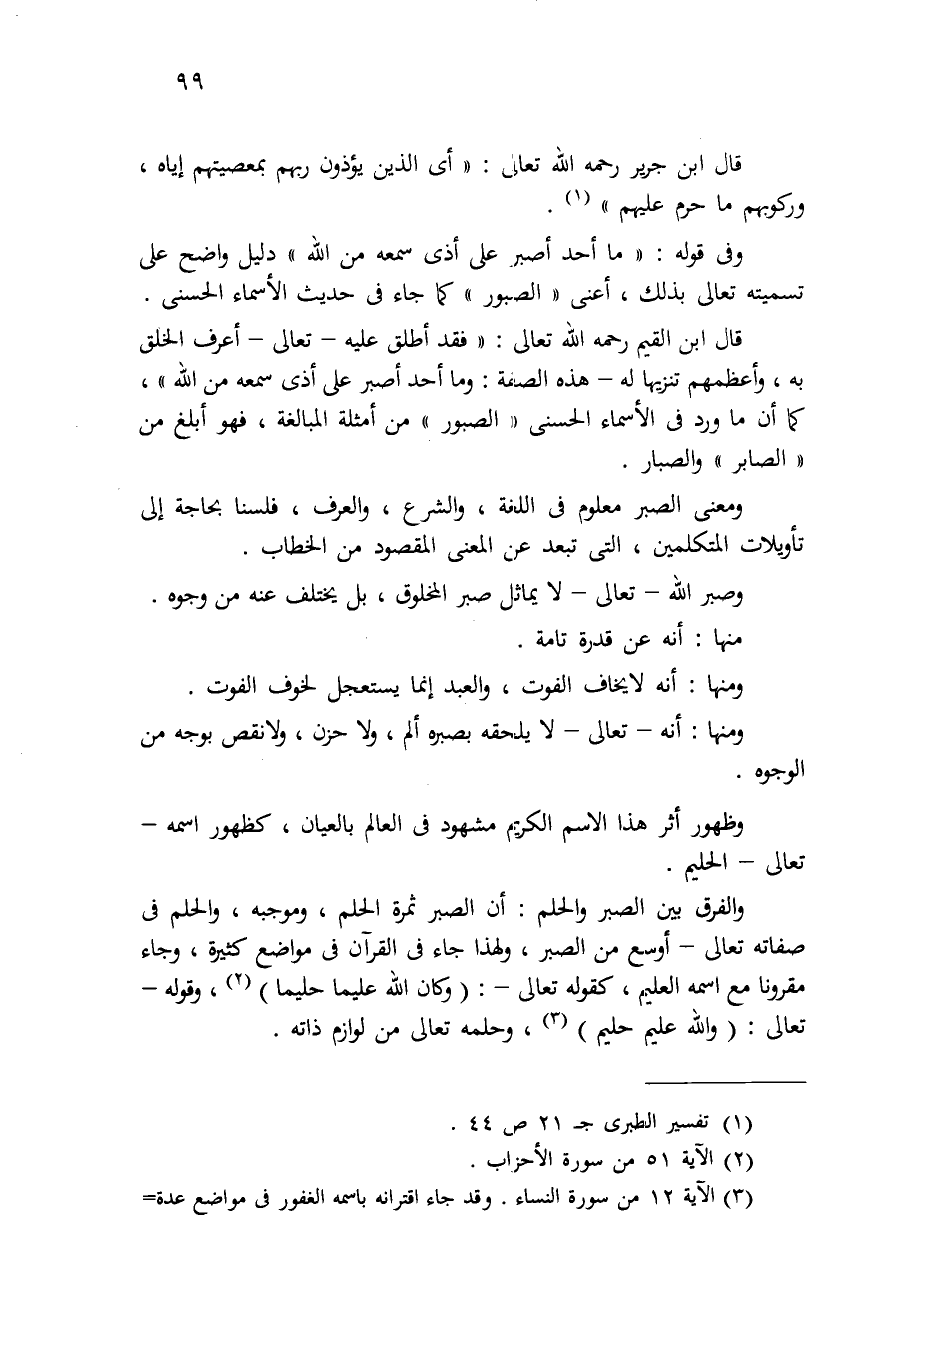 ٩٩
قال ابن جرير رحمه الله تعالى : « أى الذين يؤذون ربهم بمعصيتهم إياه ،
وركوبهم ما حرم عليهم » (١) .
وفى قوله : « ما أحد أصبر على أذى سمعه من الله » دليل واضح على
تسميته تعالى بذلك ، أعنى « الصبور » كما جاء فى حديث الأسماء الحسنى .
قال ابن القيم رحمه الله تعالى : « فقد أطلق عليه – تعالى – أعرف الخلق
به ، وأعظمهم تنزيها له – هذه الصفة : وما أحد أصبر على أذى سمعه من الله » ،
كما أن ما ورد فى الأسماء الحسنى « الصبور » من أمثلة المبالغة ، فهو أبلغ من
« الصابر » والصبار .
ومعنى الصبر معلوم فى اللغة ، والشرع ، والعرف ، فلسنا بحاجة إلى
تأويلات المتكلمين ، التى تبعد عن المعنى المقصود من الخطاب .
وصبر الله – تعالى – لا يماثل صبر المخلوق ، بل يختلف عنه من وجوه .
منها : أنه عن قدرة تامة .
ومنها : أنه لايخاف الفوت ، والعبد إنما يستعجل لخوف الفوت .
ومنها : أنه – تعالى – لا يلحقه بصبره ألم ، ولا حزن ، ولانقص بوجه من
الوجوه .
وظهور أثر هذا الاسم الكريم مشهود فى العالم بالعيان ، كظهور اسمه –
تعالى – الحليم .
والفرق بين الصبر والحلم : أن الصبر ثمرة الحلم ، وموجبه ، والحلم فى
صفاته تعالى – أوسع من الصبر ، ولهذا جاء فى القرآن فى مواضع كثيرة ، وجاء
مقرونا مع اسمه العليم ، كقوله تعالى – : ( وكان الله عليما حليما ) (٢) ، وقوله –
تعالى : ( والله عليم حليم ) (٣) ، وحلمه تعالى من لوازم ذاته .
(١) تفسير الطبرى جـ ٢١ ص ٤٤ .
(٢) الآية ٥١ من سورة الأحزاب .
(٣) الآية ١٢ من سورة النساء . وقد جاء اقترانه باسمه الغفور فى مواضع عدة=